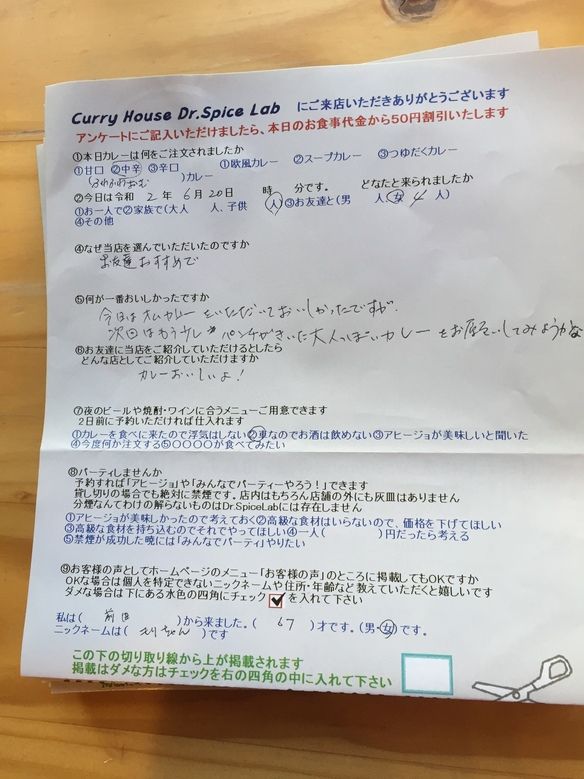 Curry House Dr.Spice Lab にご来店いただきありがとうございます
アンケートにご記入いただけましたら、本日のお食事代金から50円割引いたします
①本日カレーは何をご注文されましたか
①甘口 ②中辛 ③辛口 ①欧風カレー ②スープカレー ③つゆだくカレー
( )カレー
②今日は令和 2 年 6月20日 時 分です。 どなたと来られましたか
①お一人で②家族で(大人 人、子供 人)③お友達と(男 人 女 4 人)
④その他
④なぜ当店を選んでいただいたのですか
お友達おすすめで
⑤何が一番おいしかったですか
今日はオムカレーをいただいておいしかったですが、
次回はもう少しパンチがきいた大人っぽいカレーをお願いしてみようかな
⑥お友達に当店をご紹介していただけるとしたら
どんな店としてご紹介していただけますか
カレーおいしいよ!
⑦夜のビールや焼酎・ワインに合うメニューご用意できます
2日前に予約いただければ仕入れます
①カレーを食べに来たので浮気はしない②車なのでお酒は飲めない③アヒージョが美味しいと聞いた
④今度何か注文する⑤〇〇〇〇が食べてみたい
⑧パーティしませんか
予約すれば「アヒージョ」や「みんなでパーティーやろう!」できます
貸し切りの場合でも絶対に禁煙です。店内はもちろん店舗の外にも灰皿はありません
分煙なんてわけの解らないものはDr.SpiceLabには存在しません
①アヒージョが美味しかったので考えておく②高級な食材はいらないので、価格を下げてほしい
③高級な食材を持ち込むのでそれでやってほしい④一人( )円だったら考える
⑤禁煙が成功した暁には「みんなでパーティ」やりたい
⑨お客様の声としてホームページのメニュー「お客様の声」のところに掲載してもOKですか
OKな場合は個人を特定できないニックネームや住所・年齢など教えていただくと嬉しいです
ダメな場合は下にある水色の四角にチェック を入れて下さい
私は( 前田 )から来ました。( 67 )才です。(男・女)です。
ニックネームは( ちゃん )です
この下の切り取り線から上が掲載されます
掲載はダメな方はチェックを右の四角の中に入れて下さい